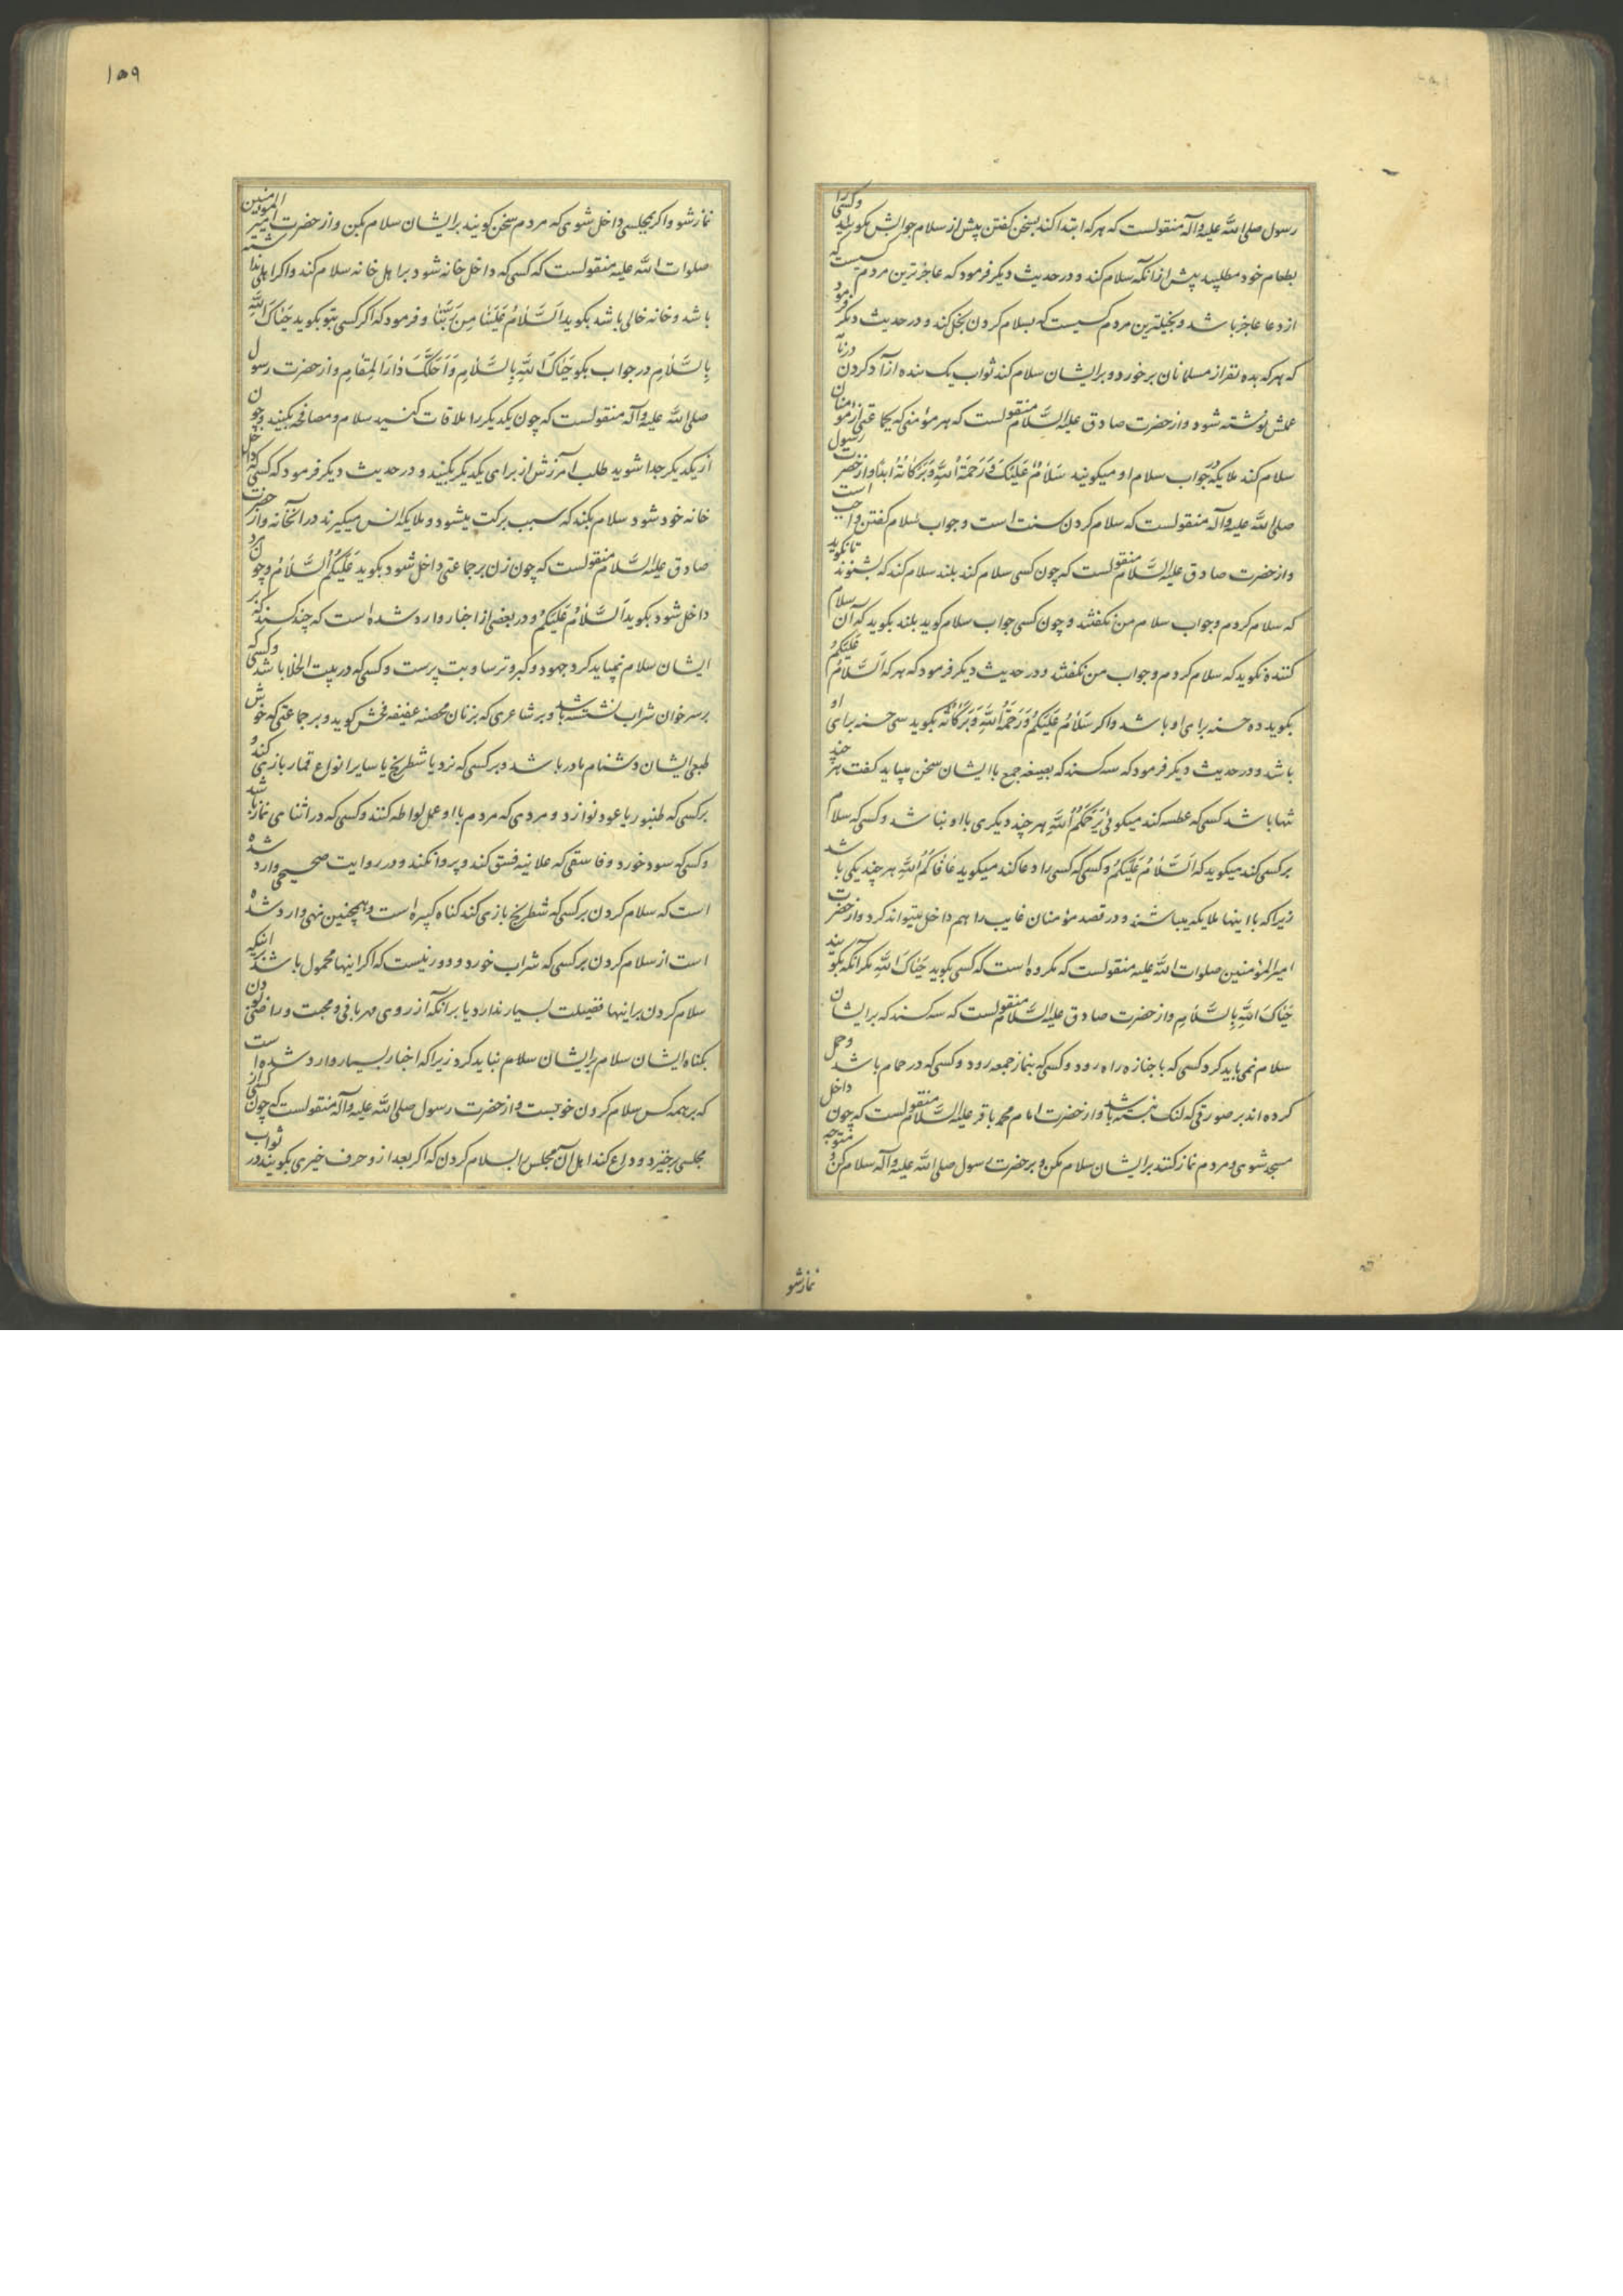 رسول صلی الله علیه وآله منقولست که هر که ابتدا کند بسخن کفتن پیش از سلام جوابش مکوئید وکسی را
بطعام خود مطلبید پیش از آنکه سلام کند و در حدیث دیکر فرمود که عاجزترین مردم کسیست که
از دعا عاجز باشد و بخیلترین مردم کسیست که بسلام کردن بخل کند و در حدیث دیکر فرمود
که هر که بده نفر از مسلمانان برخورد و برایشان سلام کند ثواب یک بنده آزاد کردن در نامه
عملش نوشته شود و از حضرت صادق علیه السلام منقولست که هر مؤمنی که بجماعتی از مؤمنان
سلام کند ملایکه در جواب سلام او میکویند سَلامٌ عَلَیْكَ وَرَحْمَةُ اللهِ وَبَرَکاتُهُ اَبَدًا و از حضرت رسول
صلی الله علیه وآله منقولست که سلام کردن سنت است و جواب سلام کفتن واجب است
و از حضرت صادق علیه السلام منقولست که چون کسی سلام کند بلند سلام کند که بشنوند تا نکوید
که سلام کردم و جواب سلام من نکفتند و چون کسی جواب سلام کوید بلند بکوید که آن سلام
کننده نکوید که سلام کردم و جواب من نکفتند و در حدیث دیکر فرمود که هر که اَلسَّلامُ عَلَیْکُمْ
بکوید ده حسنه برای او باشد و اکر سَلامٌ عَلَیْکُمْ وَرَحْمَةُ اللهِ وَبَرَکاتُهُ بکوید سی حسنه برای او
باشد و در حدیث دیکر فرمود که سه کسند که بصیغه جمع با ایشان سخن میباید کفت هر چند
تنها باشد کسی که عطسه کند میکوئی یَرْحَمُکُمُ اللهُ هر چند دیکری با او نباشد و کسی که سلام
بر کسی کند میکوید که اَلسَّلامُ عَلَیْکُمْ و کسی که کسی را دعا کند میکوید عافاکُمُ اللهُ هر چند یکی باشد
زیرا که با اینها ملایکه میباشند و در قصد مؤمنان غایب را هم داخل میتواند کرد و از حضرت
امیر المؤمنین صلوات الله علیه منقولست که مکروه است که کسی بکوید حَیّاكَ اللهُ مکر آنکه بکویند
حَیّاكَ اللهُ بِالسَّلامِ و از حضرت صادق علیه السلام منقولست که سه کسند که برایشان
سلام نمی باید کرد کسی که با جنازه راه رود و کسی که بنماز جمعه رود و کسی که در حمام باشد و حمل
کرده اند بر صورتی که لنک نبسته باشد و از حضرت امام محمد باقر علیه السلام منقولست که چون داخل
مسجد شوی و مردم نماز کنند برایشان سلام مکن و بر حضرت رسول صلی الله علیه وآله سلام کن و متوجه
نماز شو
۱۵۹
نماز شو و اکر بمجلسی داخل شوی که مردم سخن کویند برایشان سلام بکن و از حضرت امیر المؤمنین
صلوات الله علیه منقولست که کسی که داخل خانه شود بر اهل خانه سلام کند و اکر اهلی نداشته
باشد و خانه خالی باشد بکوید اَلسَّلامُ عَلَیْنا مِنْ رَبِّنا و فرمود که اکر کسی بتو بکوید حَیّاكَ اللهُ
بِالسَّلامِ در جواب بکو حَیّاكَ اللهُ بِالسَّلامِ وَاَحَلَّكَ دارَ الْمُقامِ و از حضرت رسول
صلی الله علیه وآله منقولست که چون یکدیکر را ملاقات کنید سلام و مصافحه بکنید و چون
از یکدیکر جدا شوید طلب آمرزش از برای یکدیکر بکنید و در حدیث دیکر فرمود که کسی که داخل
خانه خود شود سلام بکند که سبب برکت میشود و ملایکه انس میکیرند در آنخانه و از حضرت
صادق علیه السلام منقولست که چون زن بر جماعتی داخل شود بکوید عَلَیْکُمُ السَّلامُ و چون مرد
داخل شود بکوید اَلسَّلامُ عَلَیْکُمْ و در بعضی از اخبار وارد شده است که چند کسند که بر
ایشان سلام نمیباید کرد جهود و کبر و ترسا و بت پرست و کسی که در بیت الخلا باشد و کسی که
بر سر خوان شراب نشسته باشد و بر شاعری که بزنان محصنه عفیفه فحش کوید و بر جماعتی که خوش
طبعی ایشان دشنام مادر باشد و بر کسی که نرد یا شطرنج یا سایر انواع قمار بازی کند و
بر کسی که طنبور یا عود نوازد و مردی که مردم با او عمل لواطه کنند و کسی که در اثنای نماز باشد
و کسی که سود خورد و فاسقی که علانیه فسق کند و پروا نکند و در روایت صحیحی وارد شده
است که سلام کردن بر کسی که شطرنج بازی کند کناه کبیره است و همچنین نهی وارد شده
است از سلام کردن بر کسی که شراب خورد و دور نیست که اکر اینها محمول باشد بر اینکه
سلام کردن بر اینها فضیلت بسیار ندارد یا بر آنکه از روی مهربانی و محبت و راضی بودن
بکناه ایشان سلام برایشان سلام نباید کرد زیرا که اخبار بسیار وارد شده است
که بر همه کس سلام کردن خوبست و از حضرت رسول صلی الله علیه وآله منقولست که چون کسی از
مجلسی برخیزد و وداع کند اهل آن مجلس را بسلام کردن که اکر بعد از و حرف خیری بکویند در ثواب